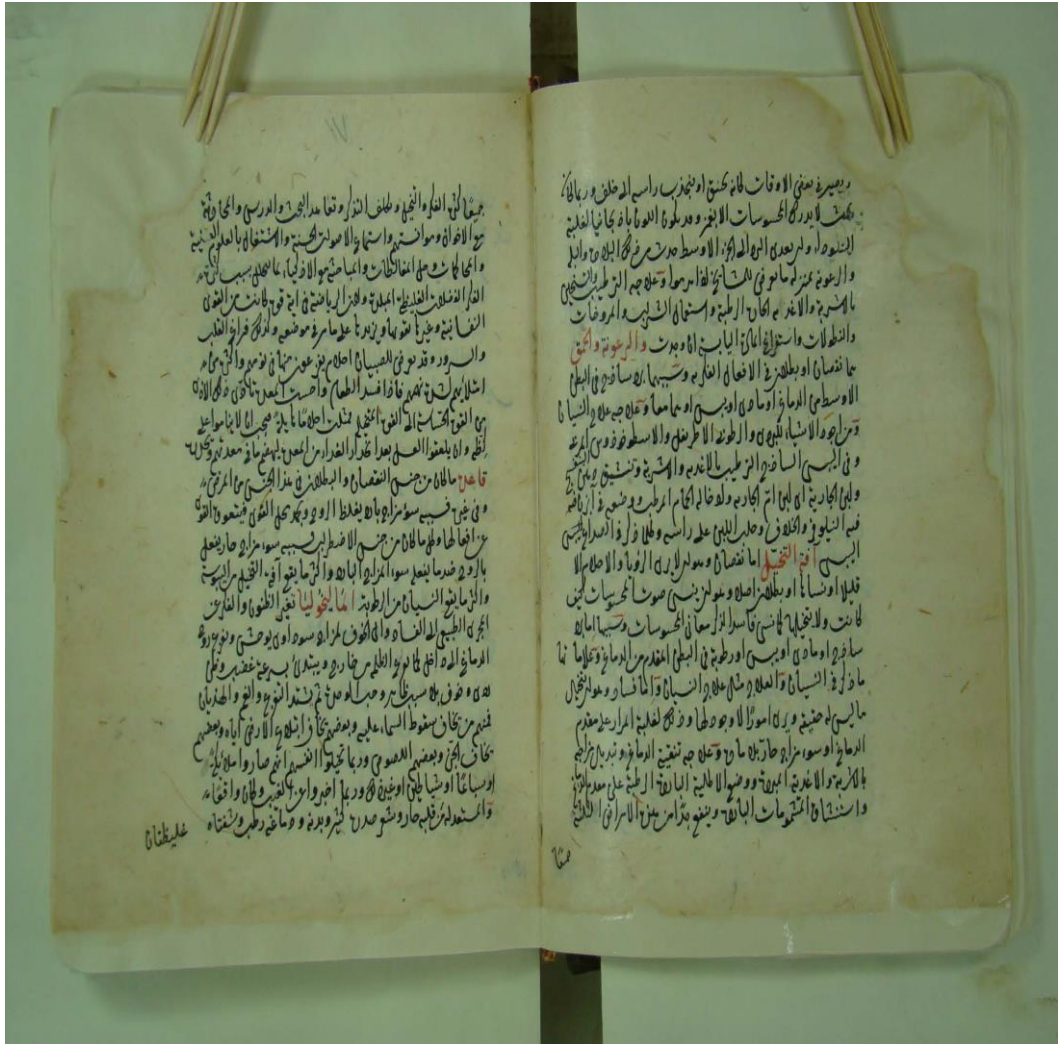 ويصير في بعض الاوقات كانه يختنق او ينجذب راسه الى خلف وربما كان
بحيث لا يدرك المحسوسات الا بعسر وقد يكون اللون باذنجانيا لغلبة
السوداء ولن يعدى البرد الى الجزء الاوسط حدث من ذلك البلادة والبله
والرعونة بمنزلة ما هو في المشايخ لفا سموا وعلاجه الترطيب والتسخين
بالاشربة والاغذية الحارة الرطبة واستعمال الشراب والمروخات
والنطولات واستفراغ المادة اليابسة ان وجدت والرعونة والحمق
هما نقصان او بطلان في الافعال الفكرية وسببهما برد ساذج في البطن
الاوسط من الدماغ او مادي او يبس او هما معا وعلاجه علاج النسيان
ومن اجود الاشياء للبرد والرطوبة الاطريفل والاسطوخودوس المربى
وفي اليبس الساذج الترطيب بالاغذية والاشربة وتنشق دهن البنفسج
ولبن الجارية اي لبن ام الجارية ولادخاله الحمام المرطب ووضعه في آبزن فيه
فيه النيلوفر والخلاف وحلب اللبن على راسه وكل ما ذكر في الصداع اليبسي
اليبسي آفة التخيل اما نقصان وهو ان لا يرى الرؤيا والاحلام الا
قليلا او نساها او بطلان اصلا وهو ان ينسى صور المحسوسات كيف
كانت ولا يتخيلها كما نسى فاسد الذكر معاني المحسوسات وسببها اما برد
ساذج او مادي او يبس او رطوبة في البطن المقدم من الدماغ وعلاماتها
ما ذكر في النسيان والعلاج مثل علاج النسيان واما فساد وهو ان يتخيل
ما ليس له حقيقة ويرى امورا لا وجود لها وذلك لغلبة المرار على مقدم
الدماغ او سوء مزاج حار بلا مادة وعلاجه تنقية الدماغ وتبديل مزاجه
بالاشربة والاغذية المبردة ووضع الاطلية الباردة الرطبة على مقدم الراس
واستنشاق المشمومات الباردة وينفع جدا من هذه الامراض
جميعا
جميعا كثرة الفكر والتخيل وتكلف التذكر وتعاهد البحث والدرس والمحادثة
مع الاخوان وموانستهم واستماع الاصوات الحسنة والاشتغال بالعلوم
والمحاكمات وحل المغالطات والمباحثة مع الاذكياء مما يتحلل بسبب كثرة
الفكر الفضلات الغليظة المبلدة وهذه الرياضة في اية قوة كانت من القوى
النفسانية وغيرها تقويها ويزيدها على ما مر في موضعه وكذلك فراغ القلب
والسرور وقد يعرض للصبيان احلام يفزعون منها في نومهم واكثره من
امتلائهم لشدة نهمهم فاذا فسد الطعام واحست المعدة تادى ذلك الاذى
من القوة الحساسة الى القوة المتخيلة فمثلت احلاما هائلة فيجب ان لا يناموا على
كظة وان يلعقوا العسل بعد انحدار الغذاء من المعدة ليهضم ما في معدتهم ويحدره
قاعدة ما كان من جنس النقصان والبطلان في هذا الجنس من المرض
وفي غيره فسببه سوء مزاج بارد يغلظ الروح ويكدر محل القوى فيتعوق القوى
عن افعالها وكل ما كان من جنس الاضطراب فسببه سوء مزاج حار يفعل
بالروح ضد ما يفعل سوء المزاج البارد واكثر ما يقع آفة التخيل من اليبوسة
واكثر ما يقع النسيان من الرطوبة الماليخوليا تغير الظنون والفكر عن
المجرى الطبيعي الى الفساد والى الخوف لمزاج سوداوي يوحش ويفزع روح
الدماغ الى داخل كما تفزع الظلمة من خارج ويبتدئ بسرعة غضب وظن
ردي وخوف بلا سبب ظاهر وحب الوحدة ثم يشتد الفزع والغم والهذيان
فمنهم من يخاف سقوط السماء عليه وبعضهم يخاف ابتلاع الارض اياه وبعضهم
يخاف الجن وبعضهم اللصوص وربما تخيلوا انفسهم انهم صاروا ملائكة
او سباعا او شياطين او غير ذلك وربما اخبروا من الغيب وكان واقعا
والمستعد له من قلبه حار وشعر صدره كثير وبدنه ودماغه رطب وشفتاه
غليظتان